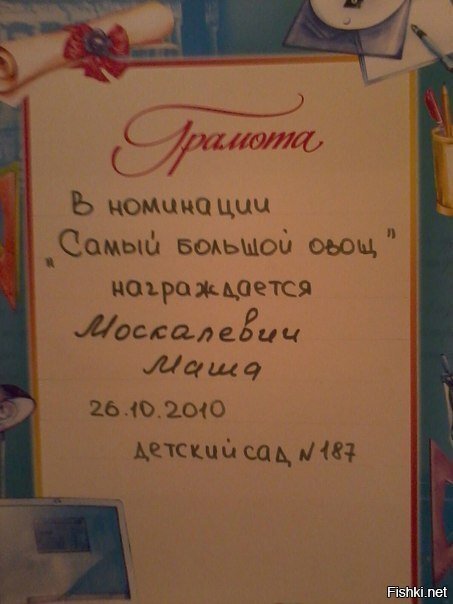 Грамота
В номинации
"Самый большой овощ"
награждается
Москалевич
Маша
26.10.2010
детский сад №187
Fishki.net